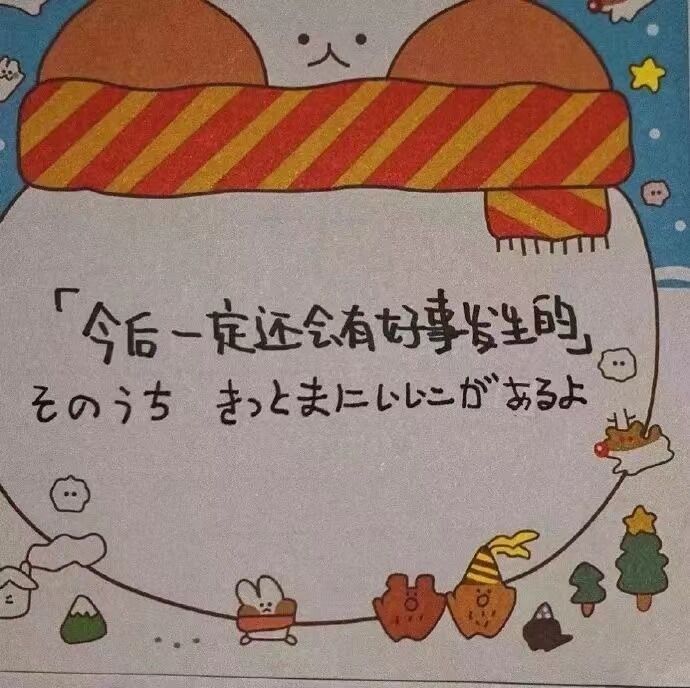 「今后一定还会有好事发生的」
そのうち きっとまにいいこがあるよ